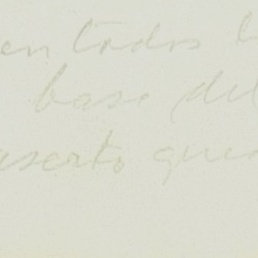 en todos
base del
aserto que